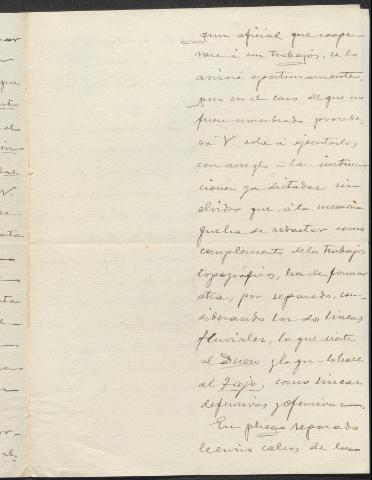 gun oficial que coope-
rase á sus trabajos, se lo
avisaré oportunamente,
pero en el caso de que no
fuere nombrado procede
rá V. solo á ejecutarlos,
con arreglo á las instruc-
ciones ya dictadas sin
olvidar que, á la memoria
que ha de redactar como
complemento de los trabajos
topográficos, ha de formar
otra, por separado, con-
siderando las dos lineas
fluviales, la que vierte
al Duero y la que lo hace
al Tajo, como lineas
defensivas y ofensivas.
En pliego separado
le envio calcos de los